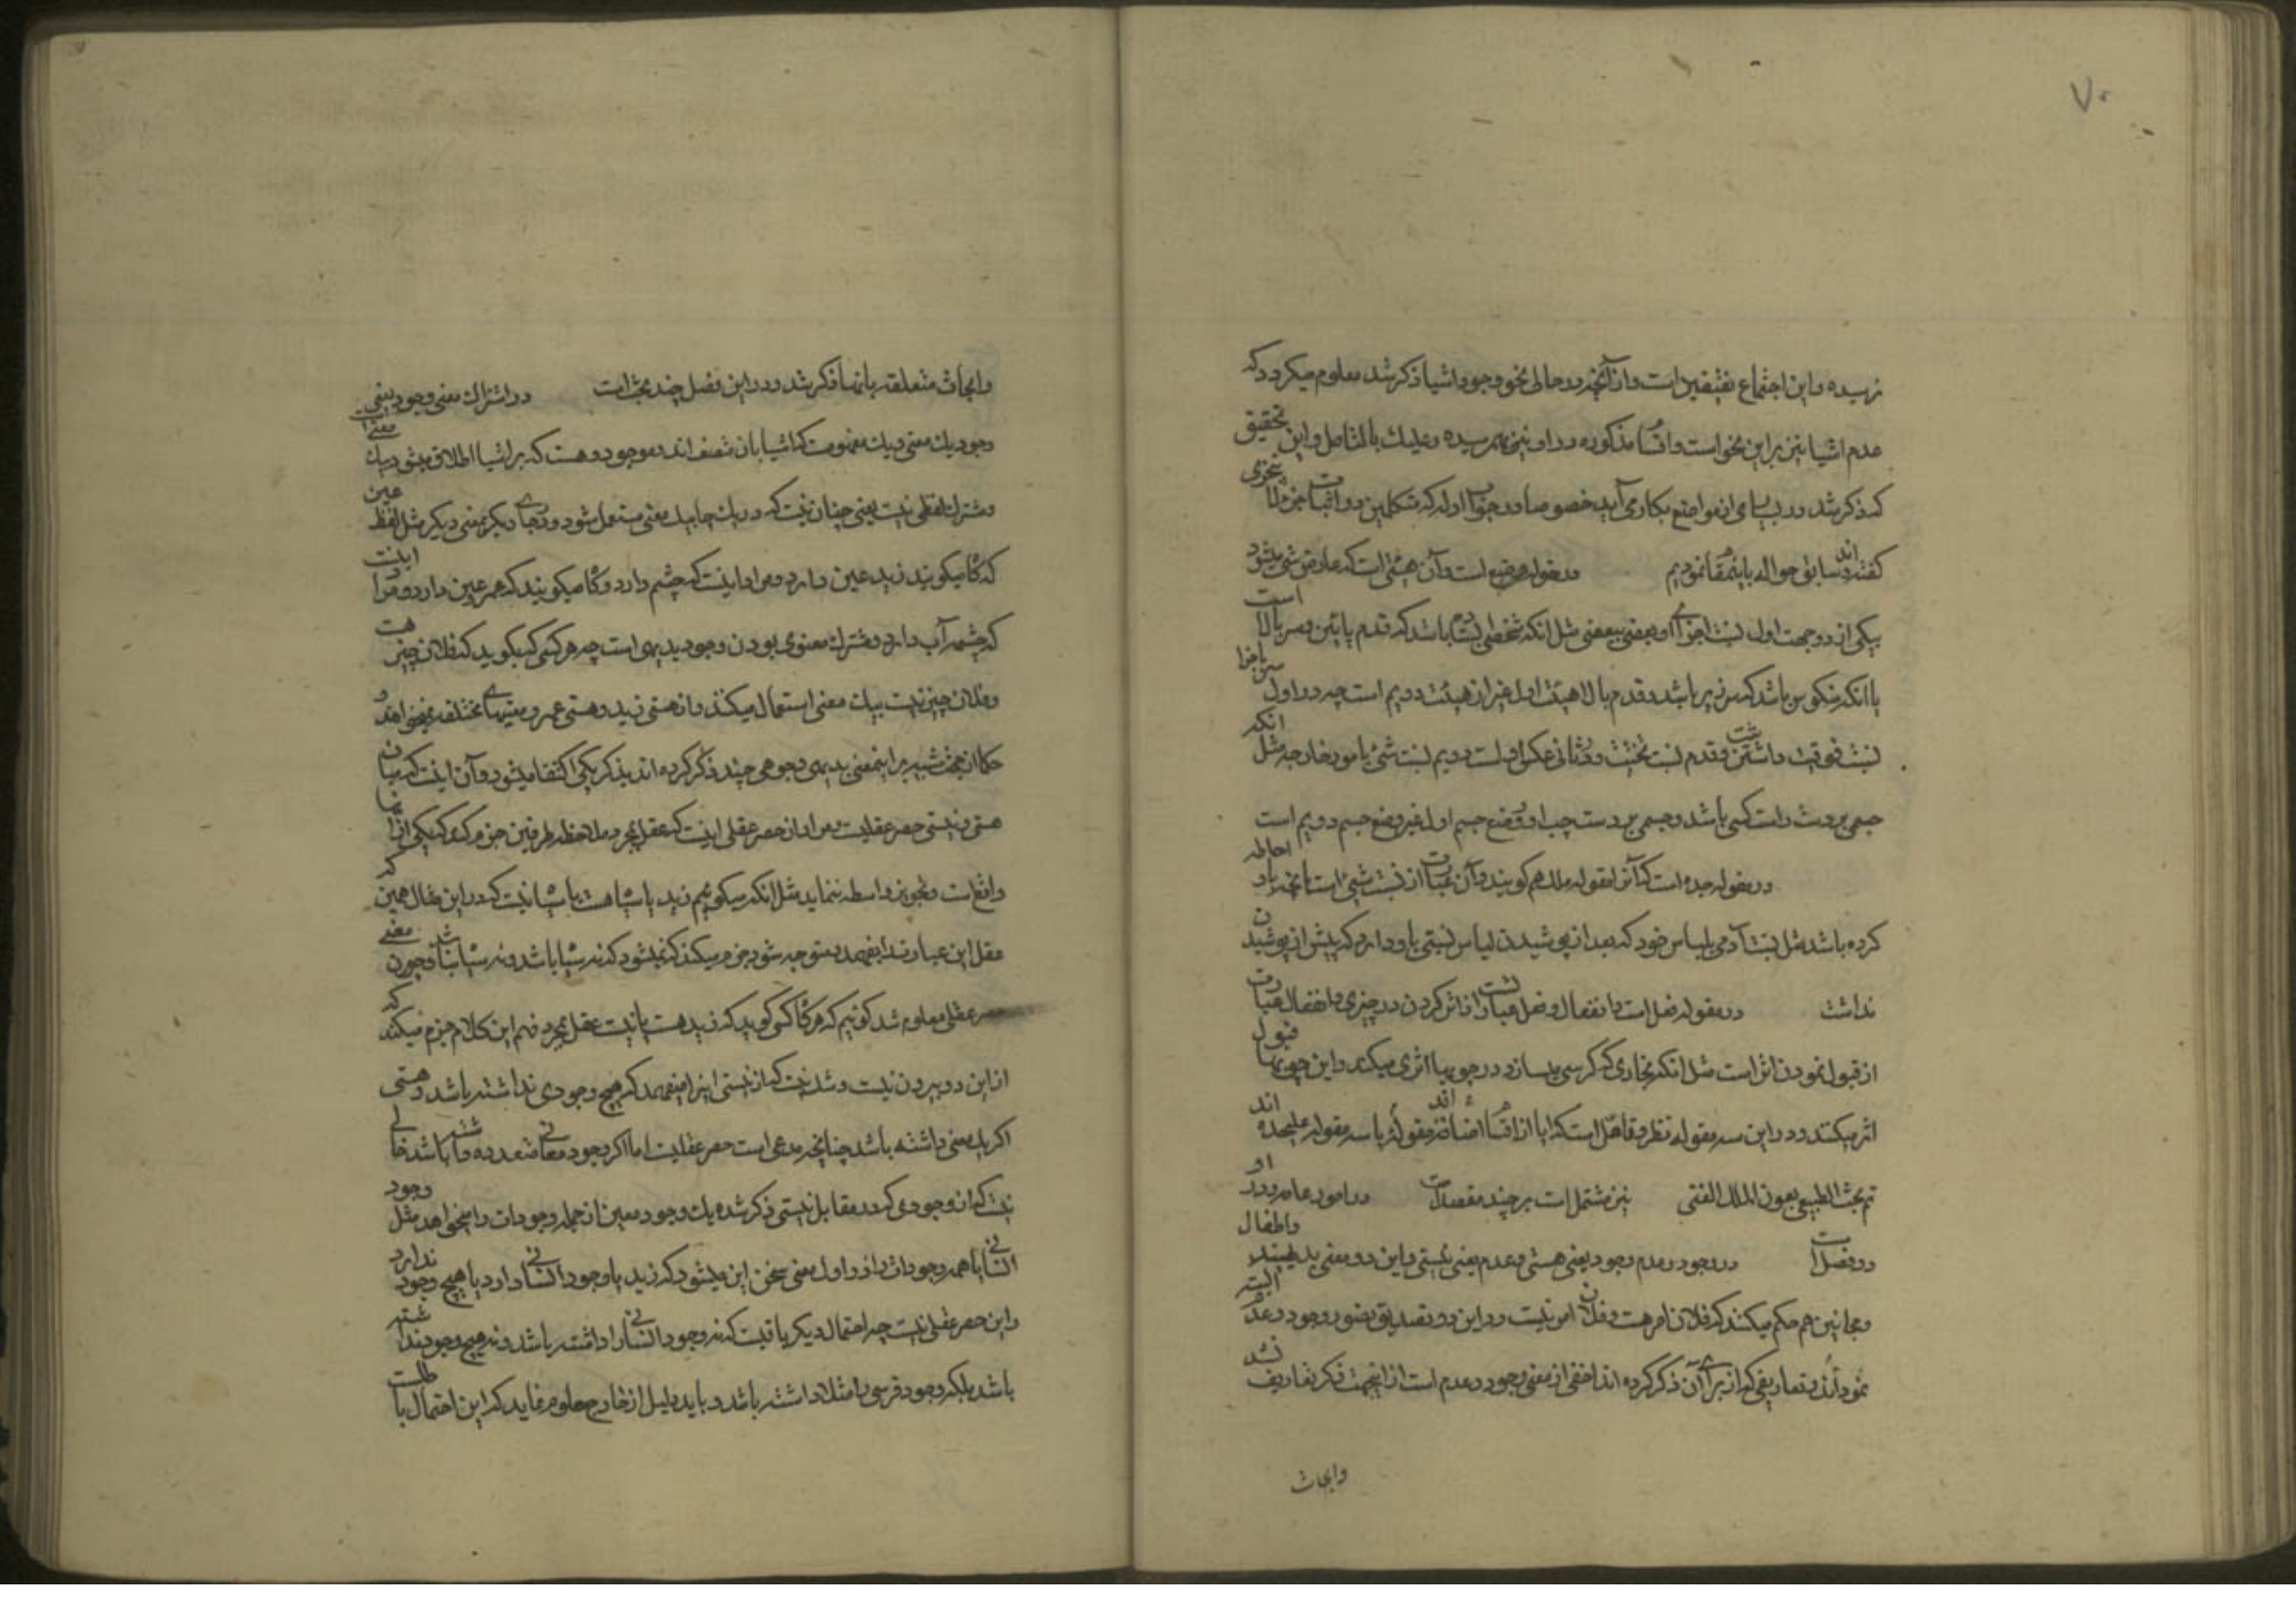 ۷۰
نرسیده و این اجتماع نقیضین است و از آنچه در حالی نحو وجود اشیا ذکر شد معلوم میکردد که
عدم اشیا نیز براین نحو است و اقسا مذکوره در او نیز بهم رسیده و علیك بالتامل و این تحقیق
که ذکر شد در بسیاری از مواضع بکار می آید خصوصا در جواب ادله که متکلمین در اثبات جزء لا یتجزی
کفته اند و سابق حواله باینمقام نمودیم در مقوله وضع است و آن هیئتی است که عارض شی میشود
بیکی از دو جهت اول نسبت اجزای او بعضی ببعضی مثل انکه شخصی ایستاده باشد که قدم پایین و سر بالا است
یا انکه منکوس باشد که سر زیر باشد و قدم بالا هیئت اول غیر از هیئت دویم است چه در اول سر باجزا
نسبت فوقیت داشت و قدم نسبت تحتیت و در ثانی عکس اولست دویم نسبت شئ بامور خارجه مثل انکه
جسمی بر دست راست کسی باشد و جسمی بر دست چپ او وضع جسم اول غیر وضع جسم دویم است
در مقوله جده است که آنرا مقوله ملك هم کویند و آن عبارت از نسبت شیئ است بانچه باو احاطه
کرده باشد مثل نسبت آدمی بلباس خود که بعد از پوشیدن لباس نسبتی باو دارد که پیش از پوشیدن
نداشت در مقوله فعل است و انفعال و فعل عبارتست از اثر کردن در چیزی و انفعال عبارت
از قبول نمودن اثر است مثل انکه نجاری که کرسی میسازد در چوبها اثری میکند و این چوبها قبول
اثر میکنند و در این سه مقوله تنظر و تامل است که ایا از اقسام اضافه اند و مقوله یا سه مقوله علیحده اند
تم بحث الطبیعی بعون الملك الغنی نیز مشتمل است بر چند مقصد در امور عامه و در او
دو فصل است در وجود و عدم وجود یعنی هستی و عدم یعنی نیستی و این دو معنی بدیهیند و اطفال
و مجانین هم حکم میکنند که فلان امر هست و فلان امر نیست و در این دو تصدیق تصور وجود و عدم البته
نموده اند و تعاریفی که از برای آن ذکر کرده اند اخفی از معنی وجود و عدم است از اینجهت ذکر تعاریف نشد
وابحاث
وابحاث متعلقه بانها ذکر شد و در این فصل چند بحث است در اشتراك معنی وجود یعنی
وجود یك معنی و یك مفهومست که اشیا بان متصف اند و موجود و هست که بر اشیا اطلاق میشود بیك معنی است
و مشترك لفظی نیست یعنی چنان نیست که در یك جا بیك معنی مستعمل شود و در جای دیگر بمعنی دیگر مثل لفظ عین
که کاه میکویند زید عین دارد و مراد اینست که چشم دارد و کاه میکویند که عمر عین دارد و مراد اینست
که چشمه آب دارد و مشترك معنوی بودن وجود بدیهی است چه هر کسی که بکوید که فلان چیز هست
و فلان چیز نیست بیك معنی استعمال میکند و از هستی زید و هستی عمرو معنیهای مختلفه نمیخواهد و
حکما از جهت تنبیه بر اینمعنی بدیهی وجوهی چند ذکر کرده اند بذکر یکی اکتفا میشود و آن اینست که میان
هستی و نیستی حصر عقلیست و مراد از حصر عقلی اینست که عقل بمجرد ملاحظه طرفین جزم کند که یکی از انها
واقع است و تجویز واسطه ننماید مثل انکه میکوئیم زید یا سیاه است یا سیاه نیست که در این مثال همین که
عقل این عبارت را بفهمد و متوجه شود جزم میکند که نمیشود که نه سیاه باشد و نه سیاه نباشد و چون معنی
حصر عقلی معلوم شد کوئیم که هر کاه کسی کوید که زید هست یا نیست عقل بمجرد فهم این کلام جزم میکند که
از این دو بیرون نیست و شك نیست که از نیستی اینرا میفهمد که هیچ وجودی نداشته باشد و هستی
اکر یك معنی داشته باشد چنانچه مدعی است حصر عقلیست اما اکر وجود معانی متعدده داشته باشد خالی
نیست که از وجودی که در مقابل نیستی ذکر شده یك وجود معین از جمله وجودات را میخواهد مثل وجود
انسانی یا همه وجودات را در اول معنی سخن این میشود که زید یا وجود انسانی دارد یا هیچ وجود ندارد
و این حصر عقلی نیست چه احتمال دیکر باقیست که نه وجود انسانی را داشته باشد و نه هیچ وجود نداشته
باشد بلکه وجود فرسی را مثلا داشته باشد و باید دلیل از خارج معلوم نماید که این احتمال باطلست